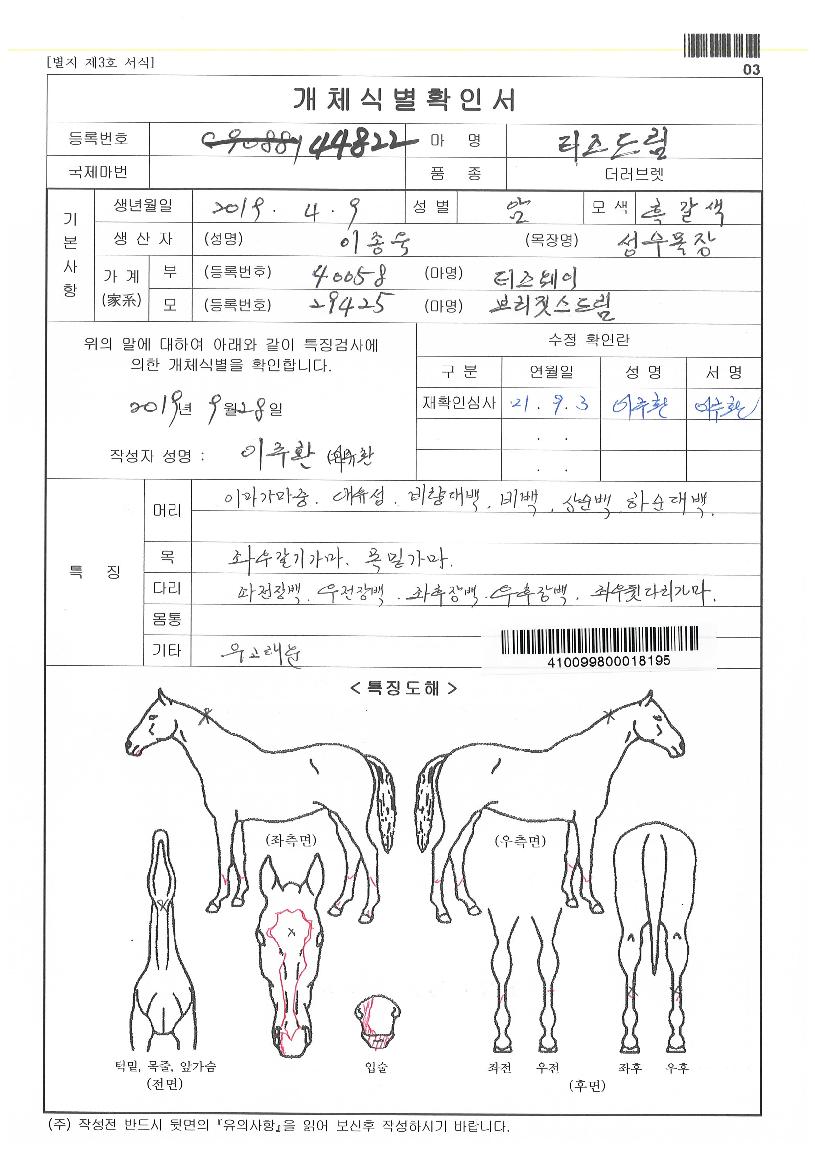 [별지 제3호 서식]
03
개체식별확인서
등록번호 44822 마 명 티즈드림
국제마번 품 종 더러브렛
기본사항
생년월일 2019. 4. 9 성별 암 모색 흑갈색
생산자 (성명) 이종욱 (목장명) 성수목장
가계(家系) 부 (등록번호) 40058 (마명) 티즈웨이
모 (등록번호) 29425 (마명) 브리짓스드림
위의 말에 대하여 아래와 같이 특징검사에
의한 개체식별을 확인합니다.
2019년 9월 28일
작성자 성명 : 이주환
수정 확인란
구 분 연월일 성 명 서 명
재확인심사 21. 9. 3 이주환 이주환
. .
. .
특 징
머리 이마가마중. 대유성. 비량대백. 비백. 상순백. 하순대백.
목 좌우갈기가마. 목밑가마.
다리 좌전장백. 우전장백. 좌후장백. 우후장백. 좌우뒷다리가마.
몸통
기타 우고래눈
410099800018195
< 특징도해 >
(좌측면) (우측면)
턱밑, 목줄, 앞가슴
(전면)
입술
좌전 우전 좌후 우후
(후면)
(주) 작성전 반드시 뒷면의 『유의사항』을 읽어 보신후 작성하시기 바랍니다.